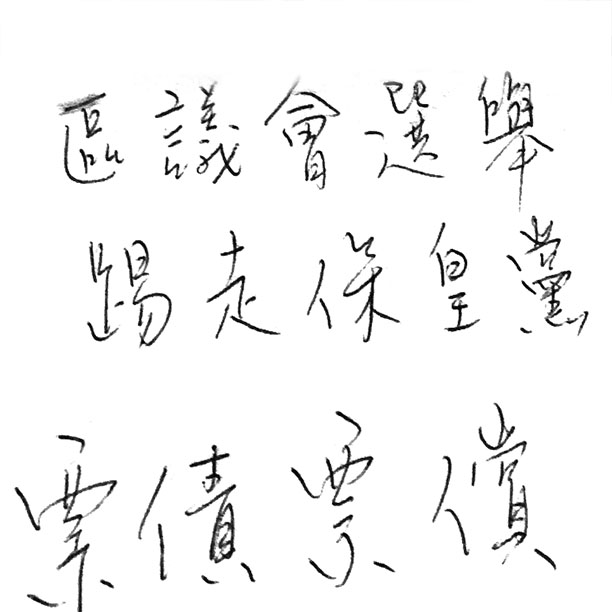 區議會選舉
踢走保皇黨
票債票償